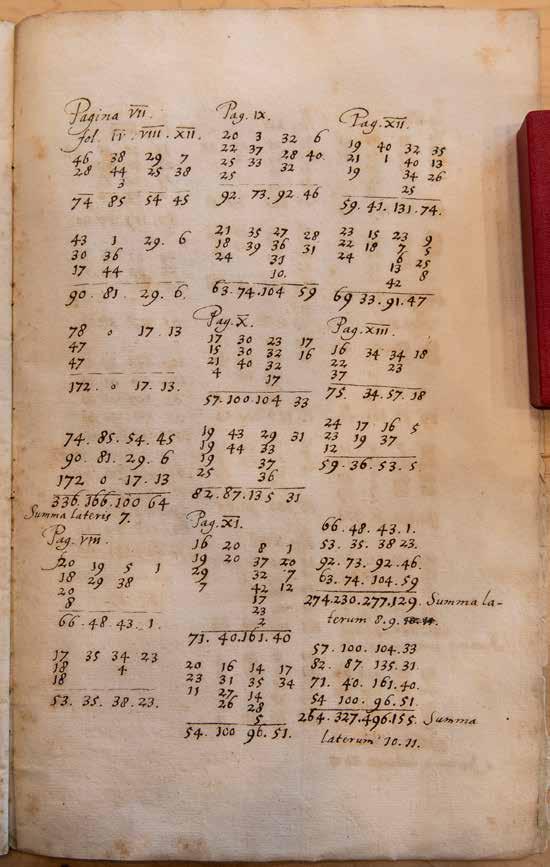 Pagina VII.
Fol. IV. VIII. XII.
46 38 29 7
28 44 25 38
3
74 85 54 45
43 1 29. 6
30 36
17 44
90. 81. 29. 6.
78 0 17. 13
47
47
172. 0 17. 13.
74. 85. 54. 45
90. 81. 29. 6
172 0 17. 13
336. 166. 100 64
Summa lateris 7.
Pag. VIII.
20 19 5 1
18 29 38
20
8
66. 48. 43. 1.
17 35 34 23
18 4
18
53. 35. 38. 23.
Pag. IX.
20 3 32 6
22 37 28 40.
25 33 32
25
92. 73. 92. 46
21 35 27 28
18 39 36 31
24 31
10.
63. 74. 104 59
Pag. X.
17 30 23 17
15 30 32 16
21 40 32
4 17
57. 100. 104 33
19 43 29 31
19 44 33
19 37
25 36
82. 87. 135 31
Pag. XI.
16 20 8 1
19 20 37 20
29 32 7
7 42 12
17
23
2
71. 40. 161. 40
20 16 14 17
23 31 35 34
11 27 14
26 28
5
54. 100 96. 51.
Pag. XII.
19 40 32 35
21 1 40 13
19 34 26
25
59. 41. 131. 74.
23 15 23 9
22 18 7 5
24 6 25
13 8
42
69 33. 91. 47
Pag. XIII.
16 34 34 18
22 23
37
75. 34. 57. 18
24 17 16 5
23 19 37
12
59. 36. 53. 5.
66. 48. 43. 1.
53. 35. 38 23.
92. 73. 92. 46.
63. 74. 104. 59
274. 230. 277. 129. Summa la-
terum 8. 9.
57. 100. 104. 33
82. 87. 135. 31.
71. 40. 161. 40.
54 100. 96. 51.
264. 327. 496. 155. Summa
laterum 10. 11.